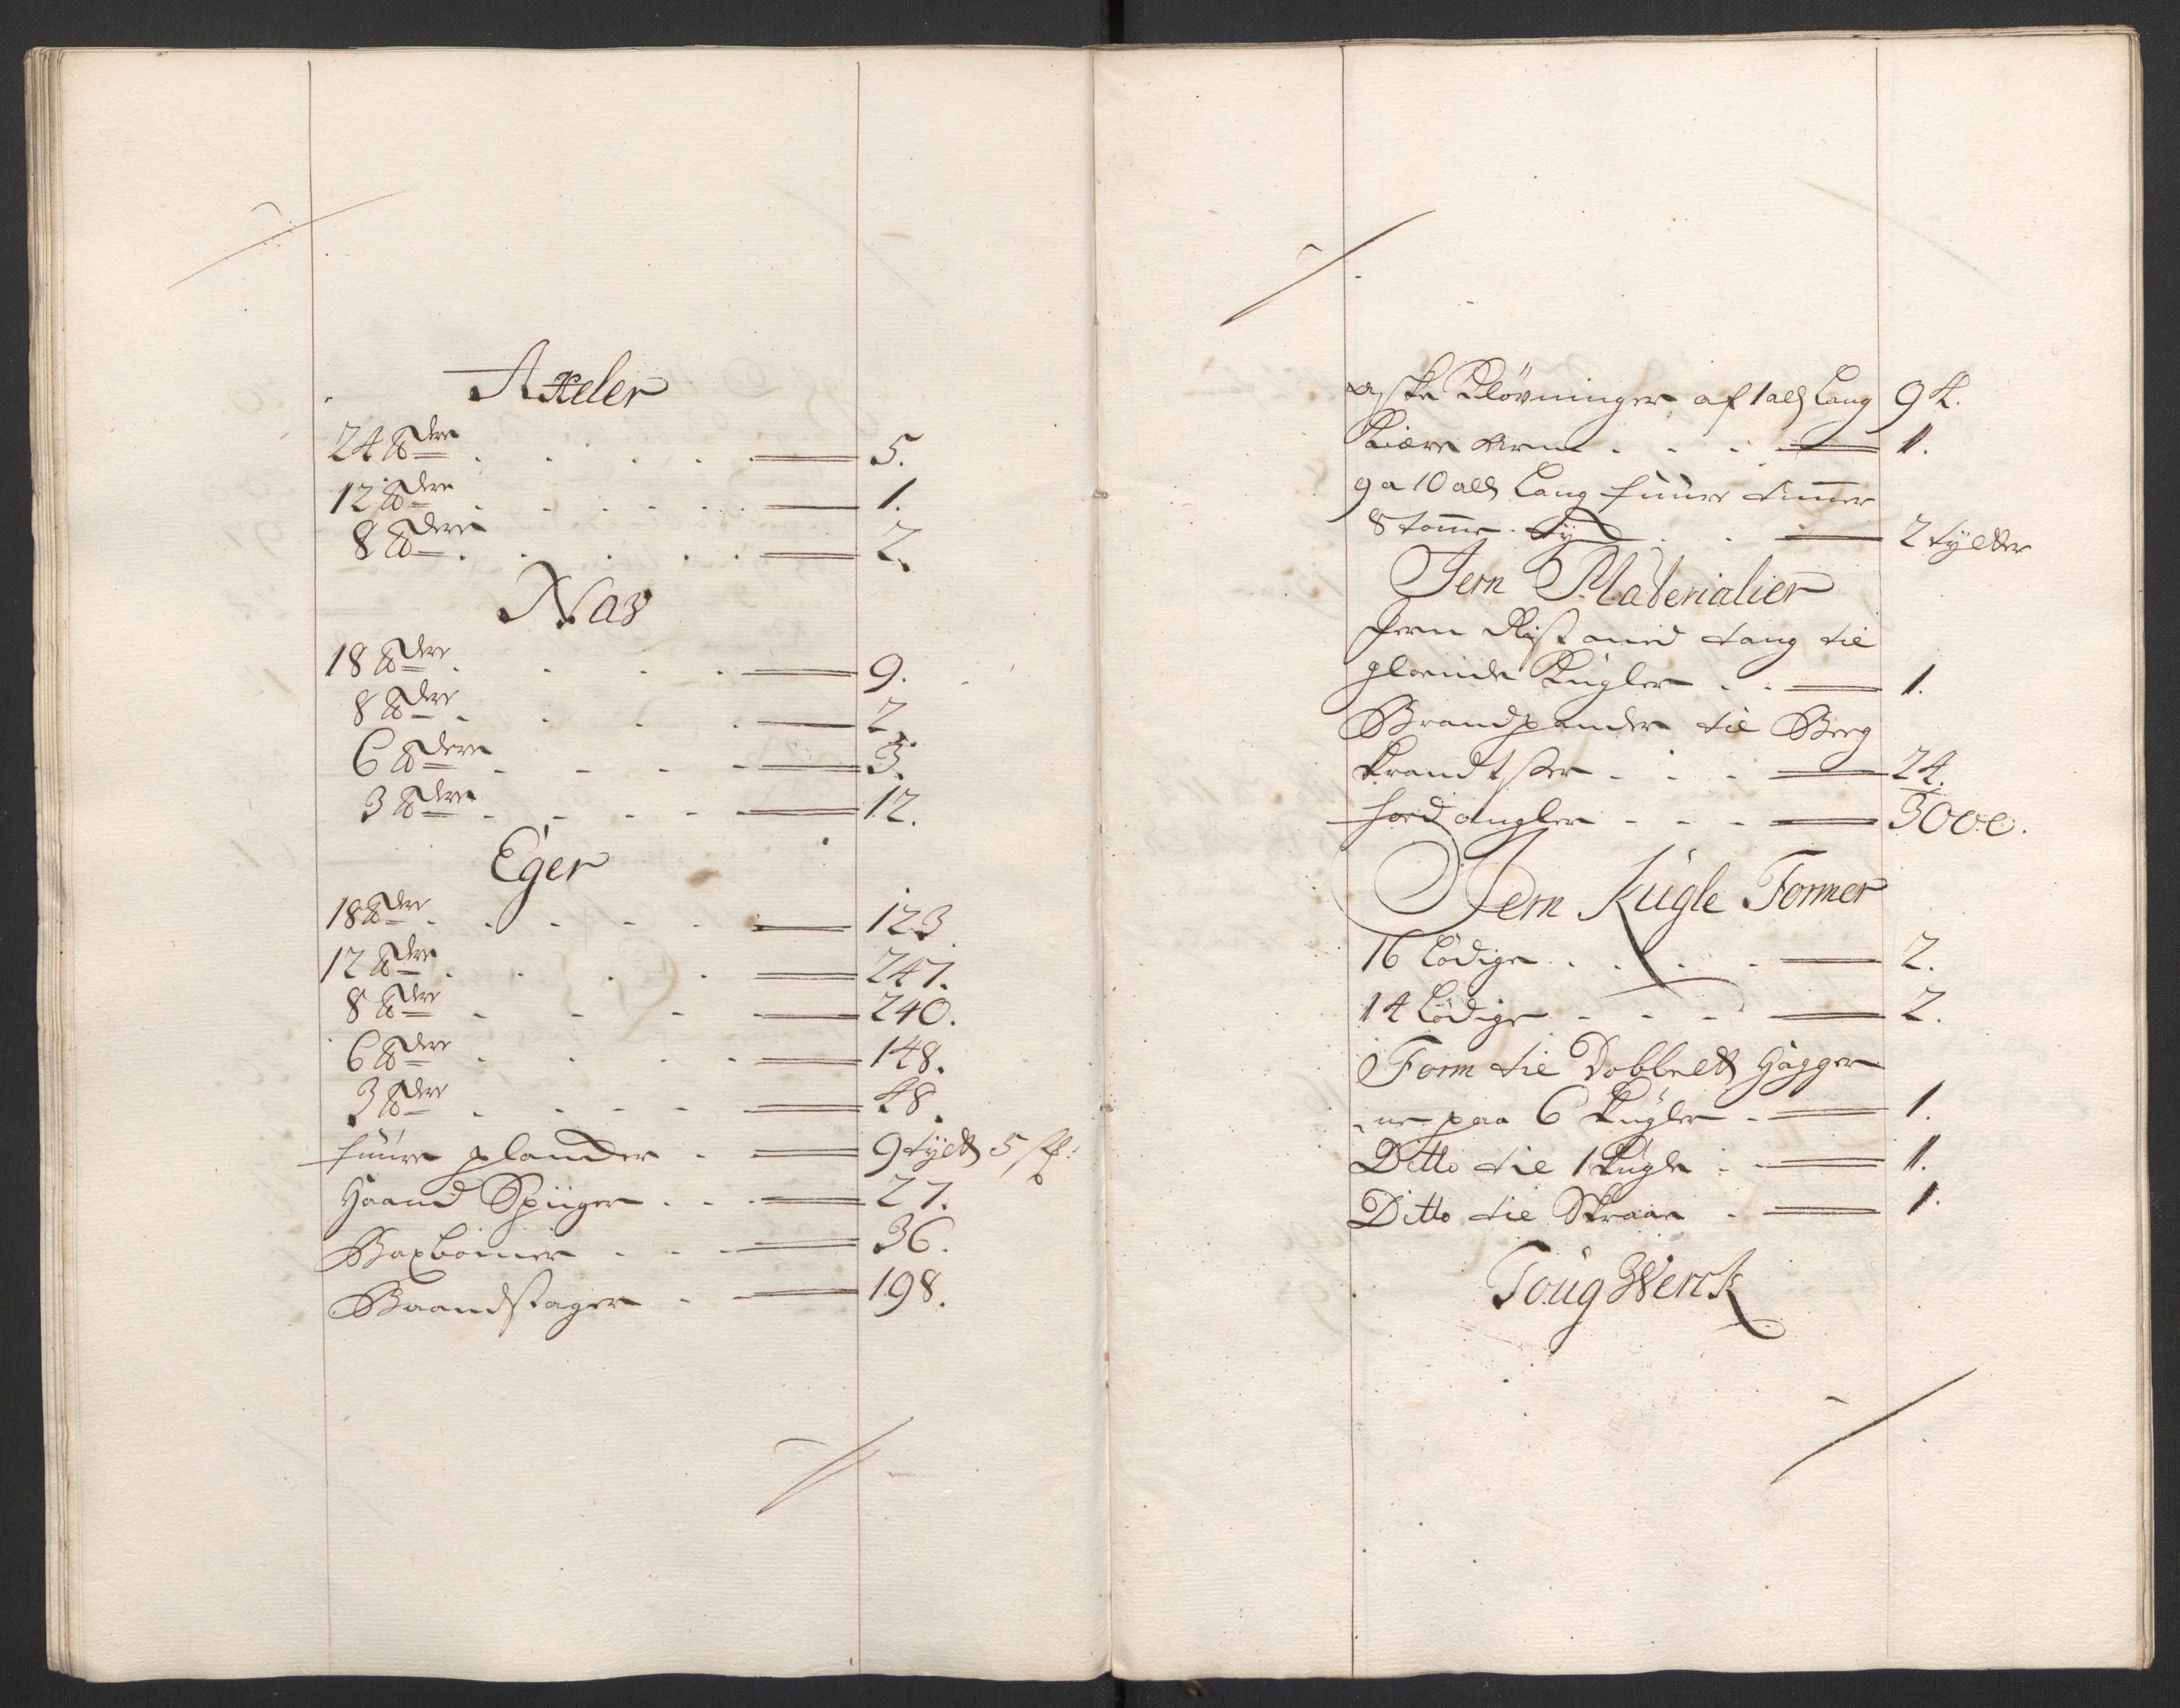 Axeler
24 ℔dere 5.
12 ℔dere 1.
8 ℔dere 2.
Nav
18 ℔dere 9.
8 ℔dere 2.
6 ℔dere 3.
3 ℔dere 12.
Eger
18 ℔dere 123
12 ℔dere 247.
8 ℔dere 240.
6 ℔dere 148.
3 ℔dere 48.
fuure plancker 9 tylt 5 st:
Haand Spiiger 27.
Baxbommer 36.
Baandstager 198.
Aske Kløvninger af 1 all Lang 94.
1.
9 a 10 all Lang fuure timer
8 tomme tyk 2 tylter
Jern Materialier
Jern Rist med tang til
gloende Kugler 1.
Brandpander til Beeg
Krandtzer 24.
fodangler 3000.
Jern Kugle Former
16 Lødige 2.
14 Lødige 2.
Form til Dobbelt Hagger
ne paa 6 Kugler 1.
Ditto til 1 Kugle 1.
Ditto til Skraae 1.
Toug Werck